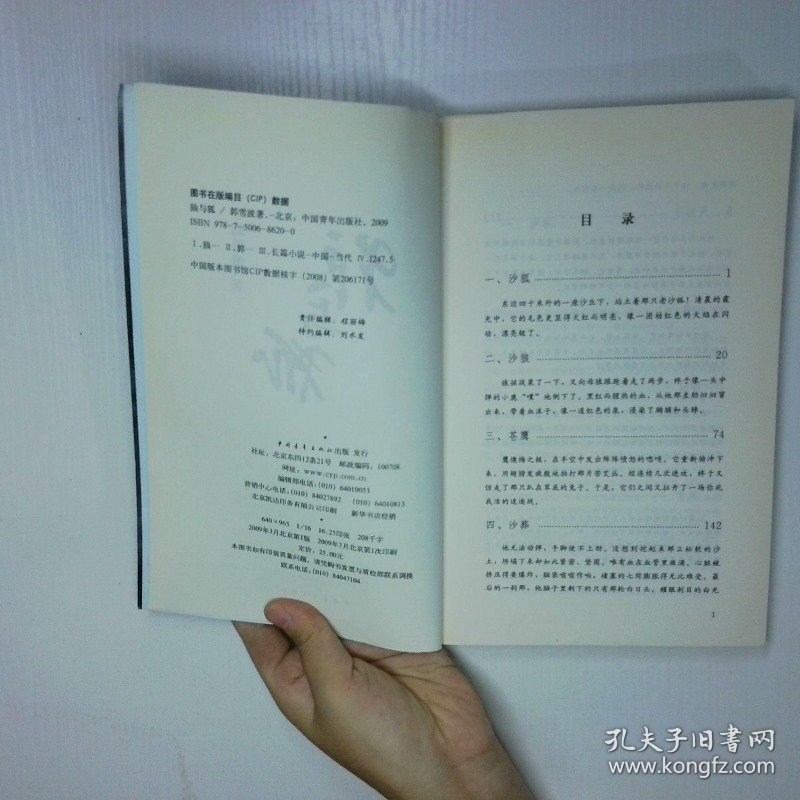 图书在版编目(CIP)数据
狼与狐 / 郭雪波著.-北京:中国青年出版社,2009
ISBN 978-7-5006-8620-0
Ⅰ.狼… Ⅱ.郭… Ⅲ.长篇小说-中国-当代 Ⅳ.I247.5
中国版本图书馆CIP数据核字(2008)第206171号
责任编辑:程丽梅
特约编辑:刘水发
中国青年出版社出版 发行
社址:北京东四12条21号 邮政编码:100708
网址:www.cyp.com.cn
编辑部电话:(010)64010053
营销中心电话:(010)84027892 (010)64010813
北京凯达印务有限公司印刷 新华书店经销
640×965 1/16 16.25印张 208千字
2009年3月北京第1版 2009年3月北京第1次印刷
定价:25.00元
本图书如有印装质量问题,请凭购书发票与质检部联系调换
联系电话:(010)84047104
目 录
一、沙狐 1
东边四十米外的一座沙丘下,站立着那只老沙狐!清晨的霞
光中,它的毛色更显得火红而明亮,像一团桔红色的火焰在闪
动,漂亮极了。
二、沙狼 20
狼孩战栗了一下,又向母狼跟跄着走了两步,终于像一头中
弹的小鹿“噗”地倒下了。黑红而腥热的血,从他那左肋汩汩冒
出来,带着血沫子,像一道红色的泉,浸染了胸脯和头脖。
三、苍鹰 74
鹰懊悔之极,在半空中发出阵阵愤怒的唳鸣。它重新俯冲下
来,用翅膀发疯般地拍打那片苦艾丛。经连续几次进攻,终于又
惊走了那只趴在草底的兔子。于是,它们之间又拉开了一场你死
我活的追逐战。
四、沙葬 142
他无法动弹,手脚使不上劲。没想到挖起来那么松软的沙
土,坍塌下来却如此紧密、坚固。唯有血在血管里液涌。心脏被
挤压得要爆炸,脑袋嗡嗡作响,堵塞的七窍膨胀得无比难受。最
后的一刹那,他脑子里剩下的只有那轮白日头,耀眼刺目的白光
1
孔夫子旧书网
www.kongfz.com